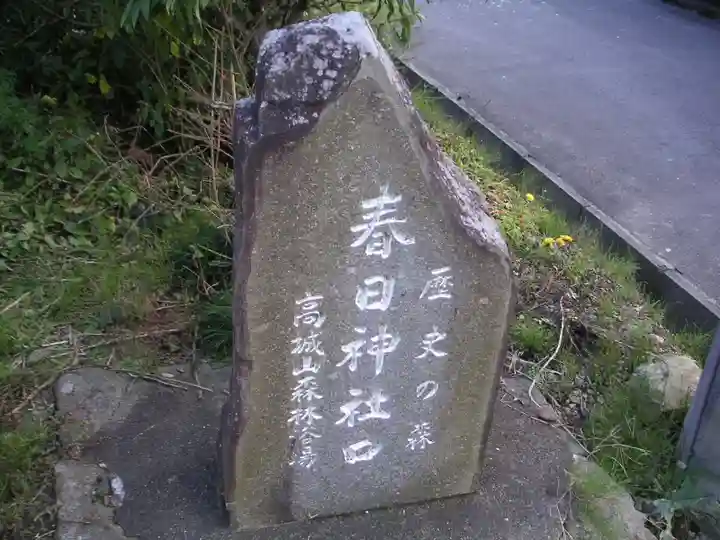 歴史の森
春日神社口
高城山森林浴場